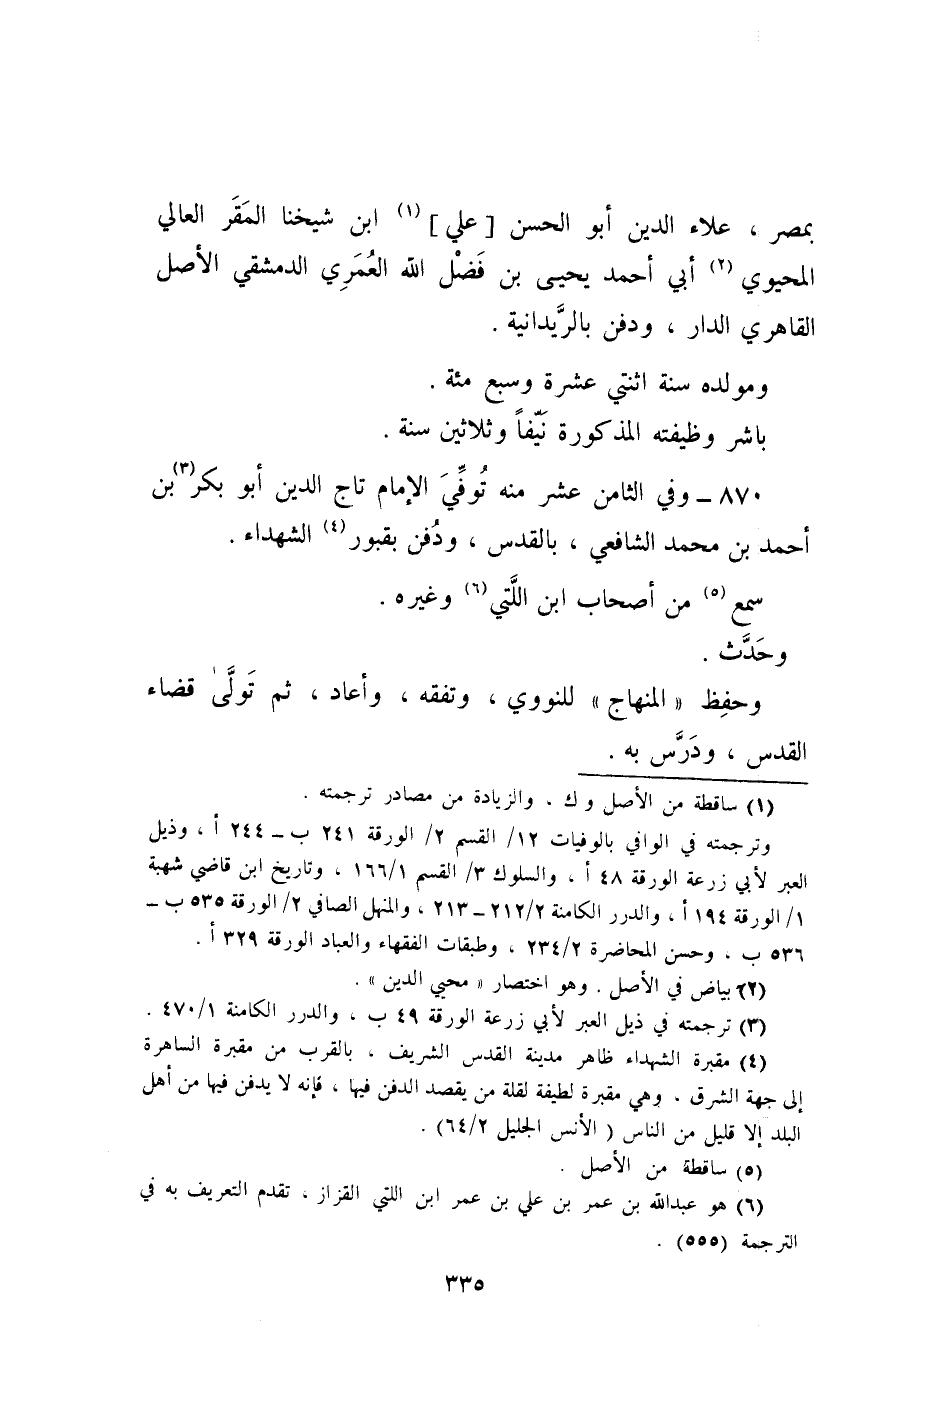 بمصر ، علاء الدين أبو الحسن [ علي ] (١) ابن شيخنا المَقَر العالي
المحيوي (٢) أبي أحمد يحيى بن فَضْل الله العُمَرِي الدمشقي الأصل
القاهري الدار ، ودفن بالرَّيدانية .
ومولده سنة اثنتي عشرة وسبع مئة .
باشر وظيفته المذكورة نَيّفاً وثلاثين سنة .
٨٧٠ ـ وفي الثامن عشر منه تُوفِّيَ الإمام تاج الدين أبو بكر(٣) بن
أحمد بن محمد الشافعي ، بالقدس ، ودُفن بقبور(٤) الشهداء .
سمع (٥) من أصحاب ابن اللَّتي(٦) وغيره .
وحَدَّث .
وحفِظ « المنهاج » للنووي ، وتفقه ، وأعاد ، ثم تَولَّىٰ قضاء
القدس ، ودَرَّس به .
(١) ساقطة من الأصل و ك . والزيادة من مصادر ترجمته .
وترجمته في الوافي بالوفيات ١٢/ القسم ٢/ الورقة ٢٤١ ب ـ ٢٤٤ أ ، وذيل
العبر لأبي زرعة الورقة ٤٨ أ ، والسلوك ٣/ القسم ١٦٦/١ ، وتاريخ ابن قاضي شهبة
١/ الورقة ١٩٤ أ ، والدرر الكامنة ٢١٢/٢ ـ ٢١٣ ، والمنهل الصافي ٢/ الورقة ٥٣٥ ب ـ
٥٣٦ ب ، وحسن المحاضرة ٢٣٤/٢ ، وطبقات الفقهاء والعباد الورقة ٣٢٩ أ .
(٢) بياض في الأصل . وهو اختصار « محيي الدين » .
(٣) ترجمته في ذيل العبر لأبي زرعة الورقة ٤٩ ب ، والدرر الكامنة ٤٧٠/١ .
(٤) مقبرة الشهداء ظاهر مدينة القدس الشريف ، بالقرب من مقبرة الساهرة
إلى جهة الشرق . وهي مقبرة لطيفة لقلة من يقصد الدفن فيها ، فإنه لا يدفن فيها من أهل
البلد إلا قليل من الناس ( الأنس الجليل ٦٤/٢) .
(٥) ساقطة من الأصل .
(٦) هو عبدالله بن عمر بن علي بن عمر ابن اللتي القزاز ، تقدم التعريف به في
الترجمة (٥٥٥) .
٣٣٥